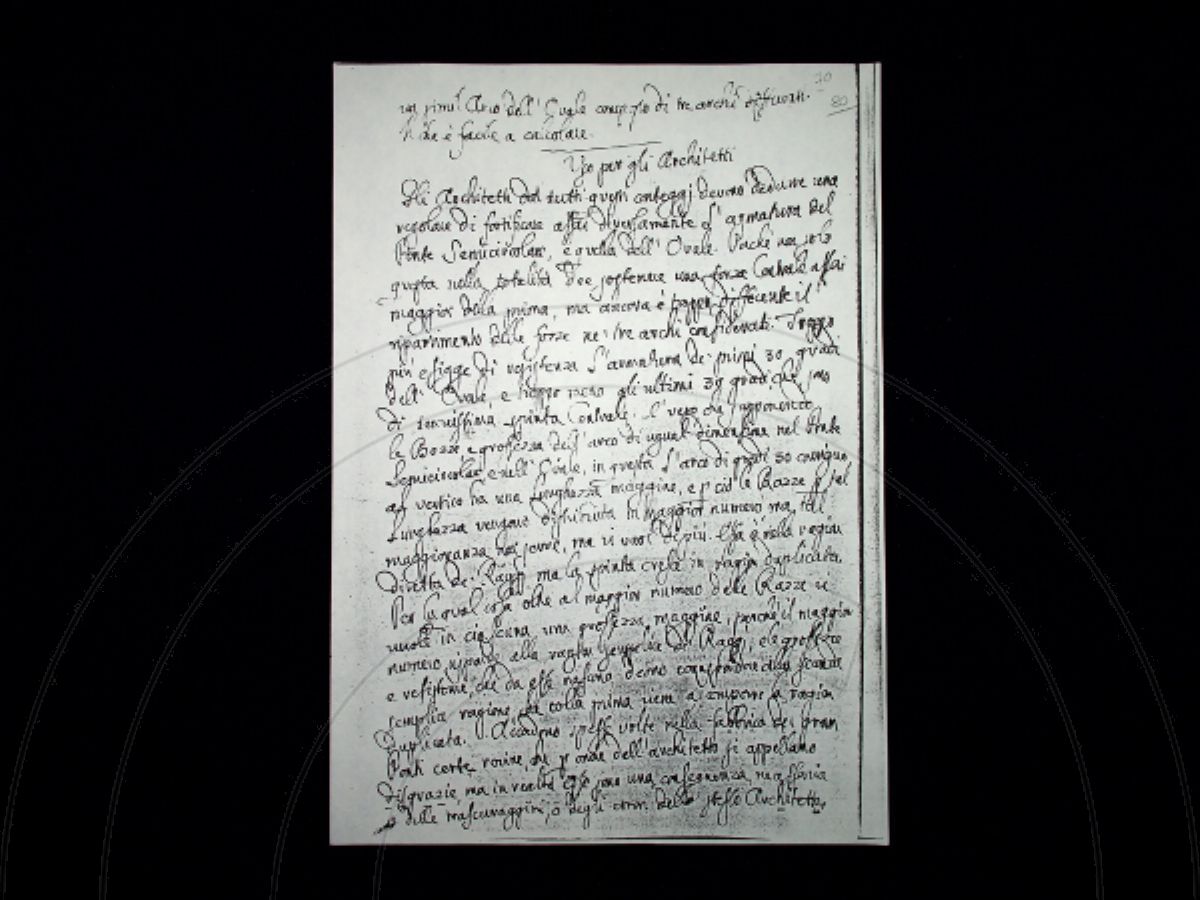 70
80
un simil Arco dell' Ovale composto di tre archi differenti.
è facile a calcolare.
Uso per gli Architetti
Gli Architetti da tutti questi conteggi devono dedurre una
regola di fortificare assai diversamente l' armatura del
Ponte Semicircolare, e quella dell' Ovale. Perché non solo
questa nella totalità dee sostenere una forza assai
maggior della prima, ma ancora è troppo differente il
ripartimento delle forze ne' tre archi considerati. Troppo
più esigge di resistenza l'armatura de' primi 30 gradi
dell' Ovale, e troppo meno gli ultimi 39 gradi, che sono
di tenuissima spinta. È vero che supponendo
le Bozze e grossezza dell' arco di ugual dimensione nel Ponte
Semicircolare e nell' Ovale, in questa l'arco di gradi 30
al vertice ha una lunghezza maggiore, e p ciò le Razze p tal
lunghezza vengono distribuite in maggior numero ma tal
maggioranza non serve, ma vi vuol di più. Essa è nella ragion
diretta de' Raggi ma la spinta cresce in ragion duplicata.
Per la qual cosa oltre al maggior numero delle Razze vi
vuole in ciascuna una grossezza maggiore, perché il maggior
numero risponde alla ragion semplice dei Raggi, e le grossezze
e resistenze, che da esse nascono
semplice ragione colla prima viene a comporre la ragion
duplicata. Accadono spesse volte nella fabbrica dei gran
Ponti certe rovine, che p onor dell'architetto si appellano
disgrazie, ma in realtà esse sono una conseguenza necessaria
delle, o degli errori dello stesso Architetto,